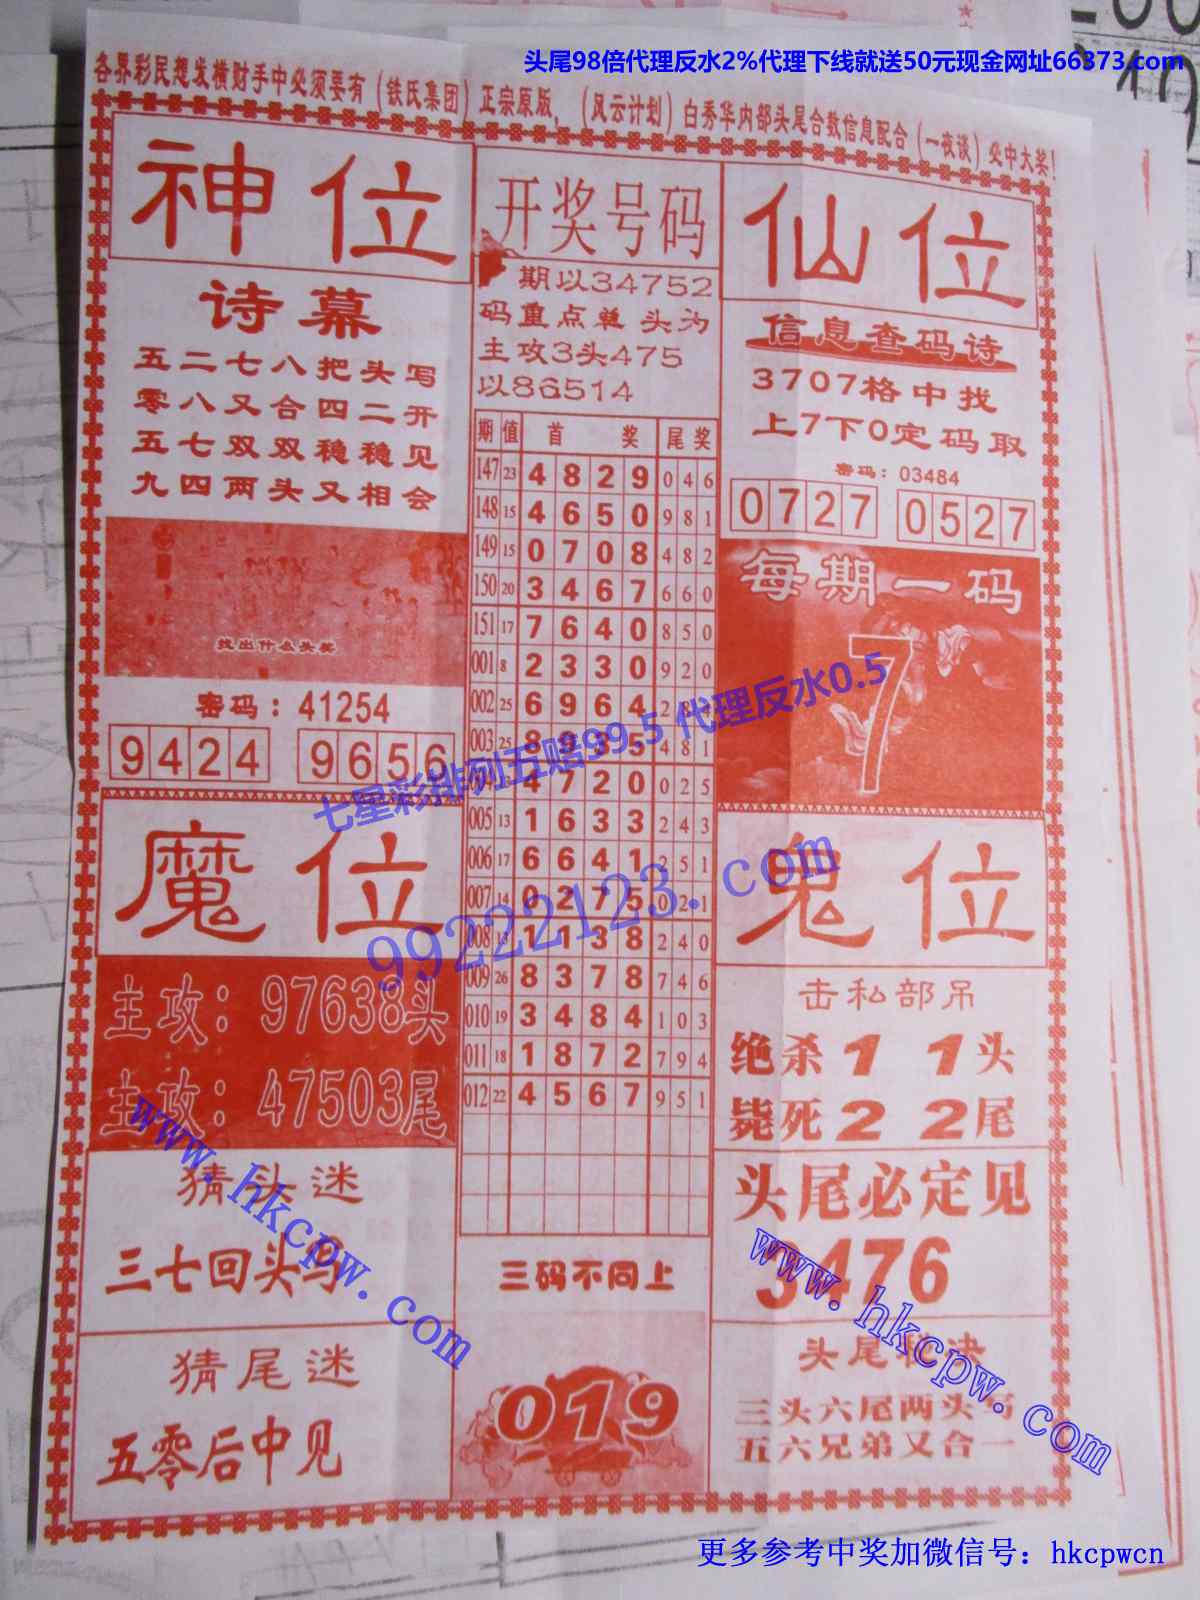 头尾98倍代理反水2%代理下线就送50元现金网址66373.com
各界彩民想发横财手中必须要有（铁氏集团）正宗原版，（风云计划）白秀华内部头尾合数信息配合（一夜谈）必中大奖！
神位
诗幕
五二七八把头写
零八又合四二开
五七双双稳稳见
九四两头又相会
找出什么头奖
密码：41254
9424 9656
魔位
主攻：97638头
主攻：47503尾
猜头迷
三七回头写
猜尾迷
五零后中见
开奖号码
期以34752
码重点单头为
主攻3头475
以86514
期 值 首 奖 尾 奖
147 23 4 8 2 9 0 4 6
148 15 4 6 5 0 9 8 1
149 15 0 7 0 8 4 8 2
150 20 3 4 6 7 6 6 0
151 17 7 6 4 0 8 5 0
001 8 2 3 3 0 9 2 0
002 25 6 9 6 4 2
003 25 8 9 3 5 4 8 1
4 7 2 0 0 2 5
005 13 1 6 3 3 2 4 3
006 17 6 6 4 1 2 5 1
007 14 0 2 7 5 0 2 1
008 13 1 1 3 8 2 4 0
009 26 8 3 7 8 7 4 6
010 19 3 4 8 4 1 0 3
011 18 1 8 7 2 7 9 4
012 22 4 5 6 7 9 5 1
三码不同上
019
仙位
信息查码诗
3707格中找
上7下0定码取
密码：03484
0727 0527
每期一码
7
鬼位
击私部吊
绝杀11头
毙死22尾
头尾必定见
3476
头尾秘决
三头六尾两头写
五六兄弟又合一
七星彩排列五赔99.5 代理反水0.5
99222123.com
www.hkcpw.com
www.hkcpw.com
更多参考中奖加微信号：hkcpwcn